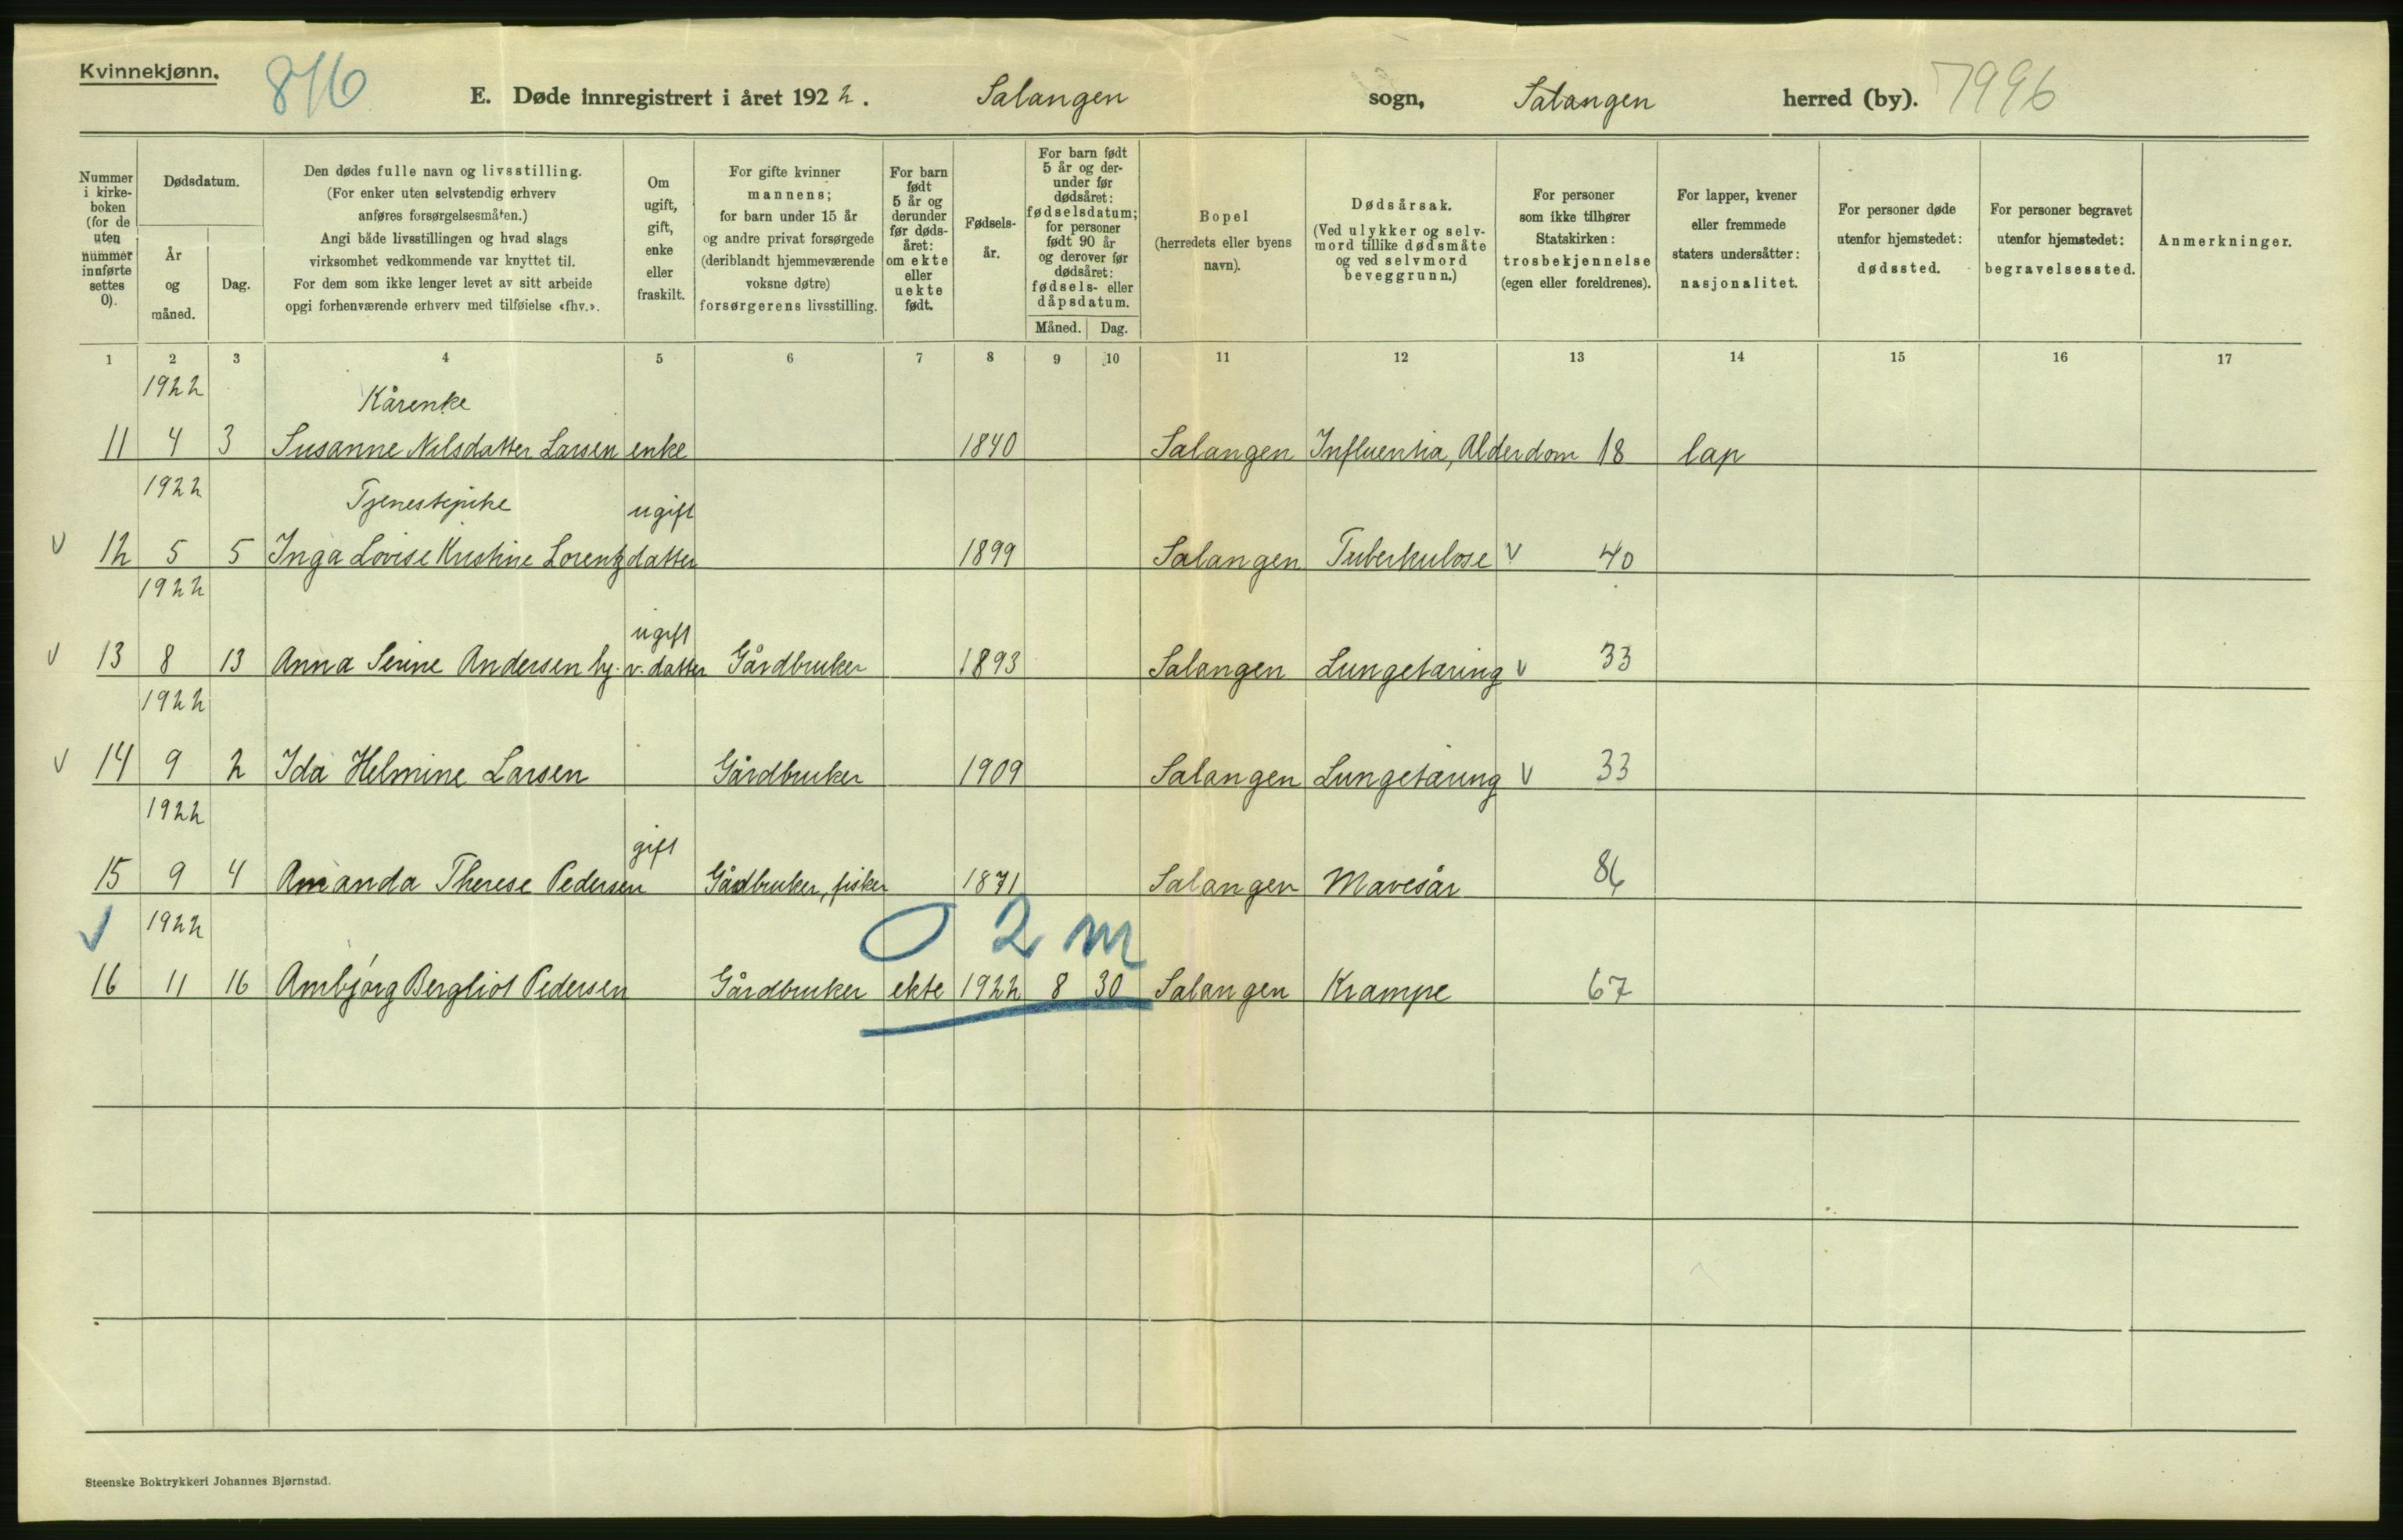 Kvinnekjønn.
876
E. Døde innregistrert i året 1922. Salangen sogn, Salangen herred (by). 7996
Nummer i kirke-boken (for de uten nummer innførte settes 0).
Dødsdatum.
År og måned.
Dag.
Den dødes fulle navn og livsstilling.
(For enker uten selvstendig erhverv
anføres forsørgelsesmåten.)
Angi både livsstillingen og hvad slags
virksomhet vedkommende var knyttet til.
For dem som ikke lenger levet av sitt arbeide
opgi forhenværende erhverv med tilføielse «fhv.».
Om ugift, gift, enke eller fraskilt.
For gifte kvinner
mannens;
for barn under 15 år
og andre privat forsørgede
(deriblandt hjemmeværende
voksne døtre)
forsørgerens livsstilling.
For barn født 5 år og derunder før døds-året: om ekte eller uekte født.
Fødsels-år.
For barn født
5 år og der-
under før
dødsåret:
fødselsdatum;
for personer
født 90 år
og derover før
dødsåret:
fødsels- eller
dåpsdatum.
Måned. Dag.
Bopel
(herredets eller byens
navn).
Dødsårsak.
(Ved ulykker og selv-
mord tillike dødsmåte
og ved selvmord
beveggrunn.)
For personer
som ikke tilhører
Statskirken:
trosbekjennelse
(egen eller foreldrenes).
For lapper, kvener
eller fremmede
staters undersåtter:
nasjonalitet.
For personer døde
utenfor hjemstedet:
dødssted.
For personer begravet
utenfor hjemstedet:
begravelsessted.
Anmerkninger.
1 2 3 4 5 6 7 8 9 10 11 12 13 14 15 16 17
1922 Kårenke
11 4 3 Susanne Nilsdatter Larsen enke 1840 Salangen Influentia, Alderdom 18 lap
1922 Tjenestepike ugift
v 12 5 5 Inga Lovise Kristine Lorentzdatter 1899 Salangen Tuberkulose v 40
1922 ugift
v 13 8 13 Anna Serine Andersen hj. v. datter Gårdbruker 1893 Salangen Lungetæring v 33
1922
v 14 9 2 Ida Helmine Larsen Gårdbruker 1909 Salangen Lungetæring v 33
1922 gift
15 9 4 Amanda Therese Pedersen Gårdbruker, fisker 1871 Salangen Mavesår 86
v 1922 0 2 m
16 11 16 Arnbjørg Bergliot Pedersen Gårdbruker ekte 1922 8 30 Salangen Krampe 67
Steenske Boktrykkeri Johannes Bjørnstad.